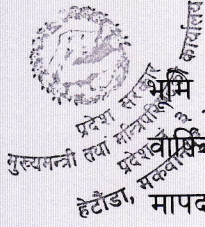 प्रदेश सरकार
मुख्यमन्त्री तथा मन्त्रिपरिषद्को कार्यालय
प्रदेश नं. ३
हेटौंडा, मकवानपुर
भूमि
वार्षिक
मापद